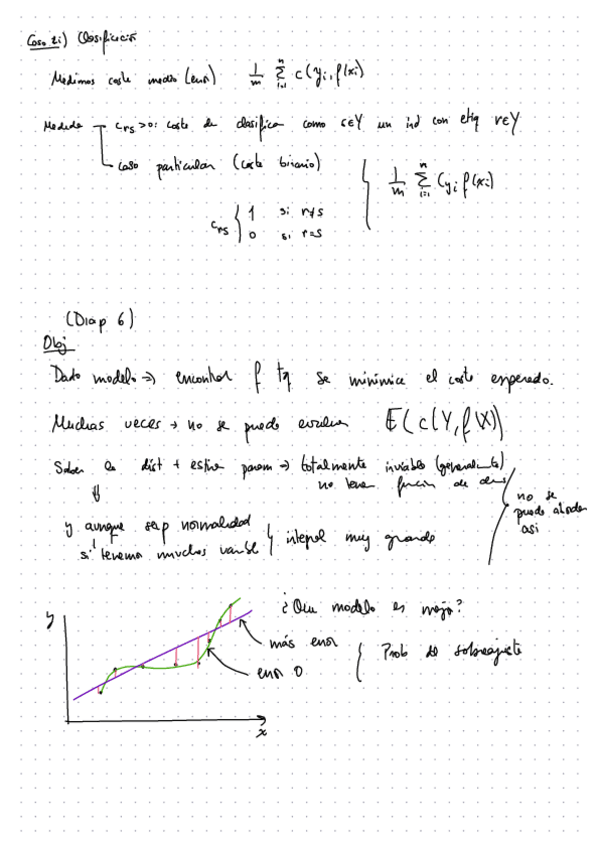 Caso 2i) Clasificación
Medimos coste medio (error) 1/m Σ_{i=1}^{n} c(y_i, f(x_i)
Medida c_rs>0: coste de clasificar como s∈Y un ind con etiq r∈Y
caso particular (coste binario)
1/m Σ_{i=1}^{n} C_{y_i f(x_i)}
c_rs { 1 si r≠s
0 si r=s
(Diap 6)
Obj
Dado modelo → encontrar f tq se minimice el coste esperado.
Muchas veces → no se puede evaluar E(c(Y, f(X))
Saber la dist + estim param → totalmente inviable (generalmente)
no tener función de dens
no se
puede abordar
asi
y aunque sup normalidad
si tenemos muchos variabl } integral muy grande
¿Que modelo es mejor?
y
más error
error 0
Prob de sobreajuste
x